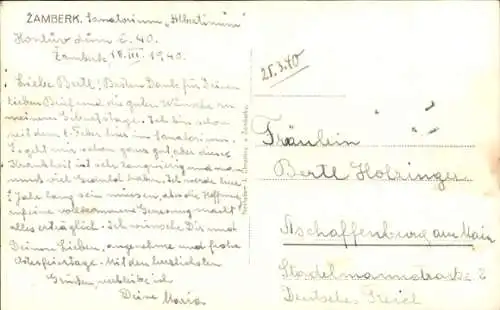 ŽAMBERK. Sanatorium „Albertinum"
Žamberk 18. III. 1940.
Liebe Bertl! Besten Dank für Deinen
lieben Brief und die guten Wünsche zu
meinem Geburtstage. Ich bin schon
seit dem 1. Feber hier im Sanatorium.
Es geht mir schon ganz gut aber diese
Krankheit ist sehr langwierig und man
muss viel Geduld haben. Ich werde hier
1 Jahr lang sein müssen, aber die Hoffnung
auf eine vollkommene Genesung macht
alles erträglich. Ich wünsche Dir und
Deinen Lieben, angenehme und frohe
Osterfeiertage. Mit den herzlichsten
Grüssen, verbleibe ich
Deine Maria
25.3.40
Fräulein
Bertl Holzinger
Aschaffenburg am Main
Stadelmannstrasse 2
Deutsches Reich